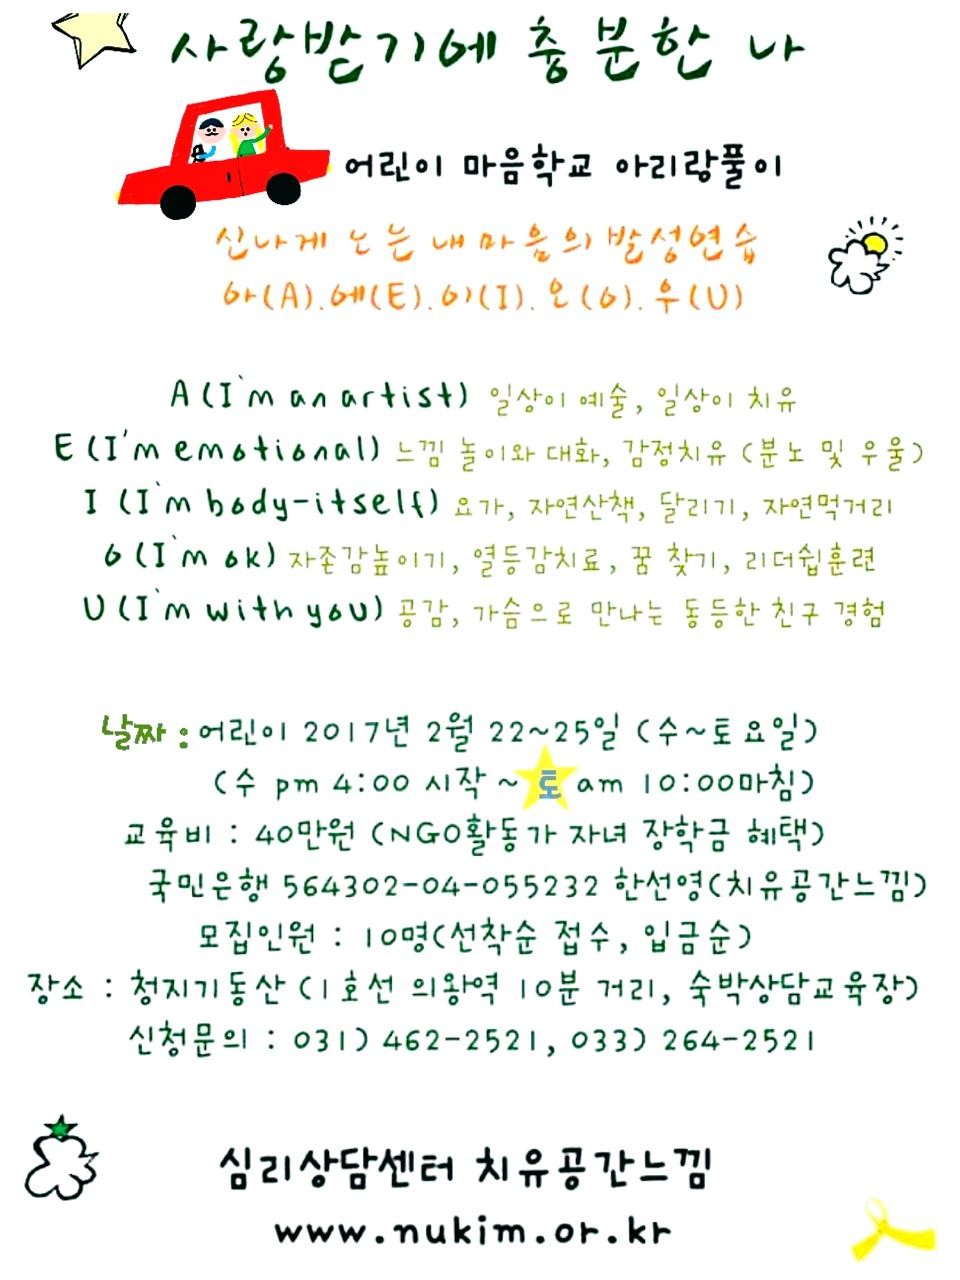 사랑받기에 충분한 나
어린이 마음학교 아리랑풀이
신나게 노는 내 마음의 발성연습
아(A).에(E).이(I).오(O).우(U)
A(I'm an artist) 일상이 예술, 일상이 치유
E(I'm emotional) 느낌 놀이와 대화, 감정치유 (분노 및 우울)
I (I'm body-itself) 요가, 자연산책, 달리기, 자연먹거리
O(I'm ok) 자존감높이기, 열등감치료, 꿈 찾기, 리더쉽훈련
U(I'm with you) 공감, 가슴으로 만나는 동등한 친구 경험
날짜 : 어린이 2017년 2월 22~25일 (수~토요일)
(수 pm 4:00 시작 ~ 토 am 10:00마침)
교육비 : 40만원 (NGO활동가 자녀 장학금 혜택)
국민은행 564302-04-055232 한선영(치유공간느낌)
모집인원 : 10명(선착순 접수, 입금순)
장소 : 청지기동산 (1호선 의왕역 10분 거리, 숙박상담교육장)
신청문의 : 031) 462-2521, 033) 264-2521
심리상담센터 치유공간느낌
www.nukim.or.kr